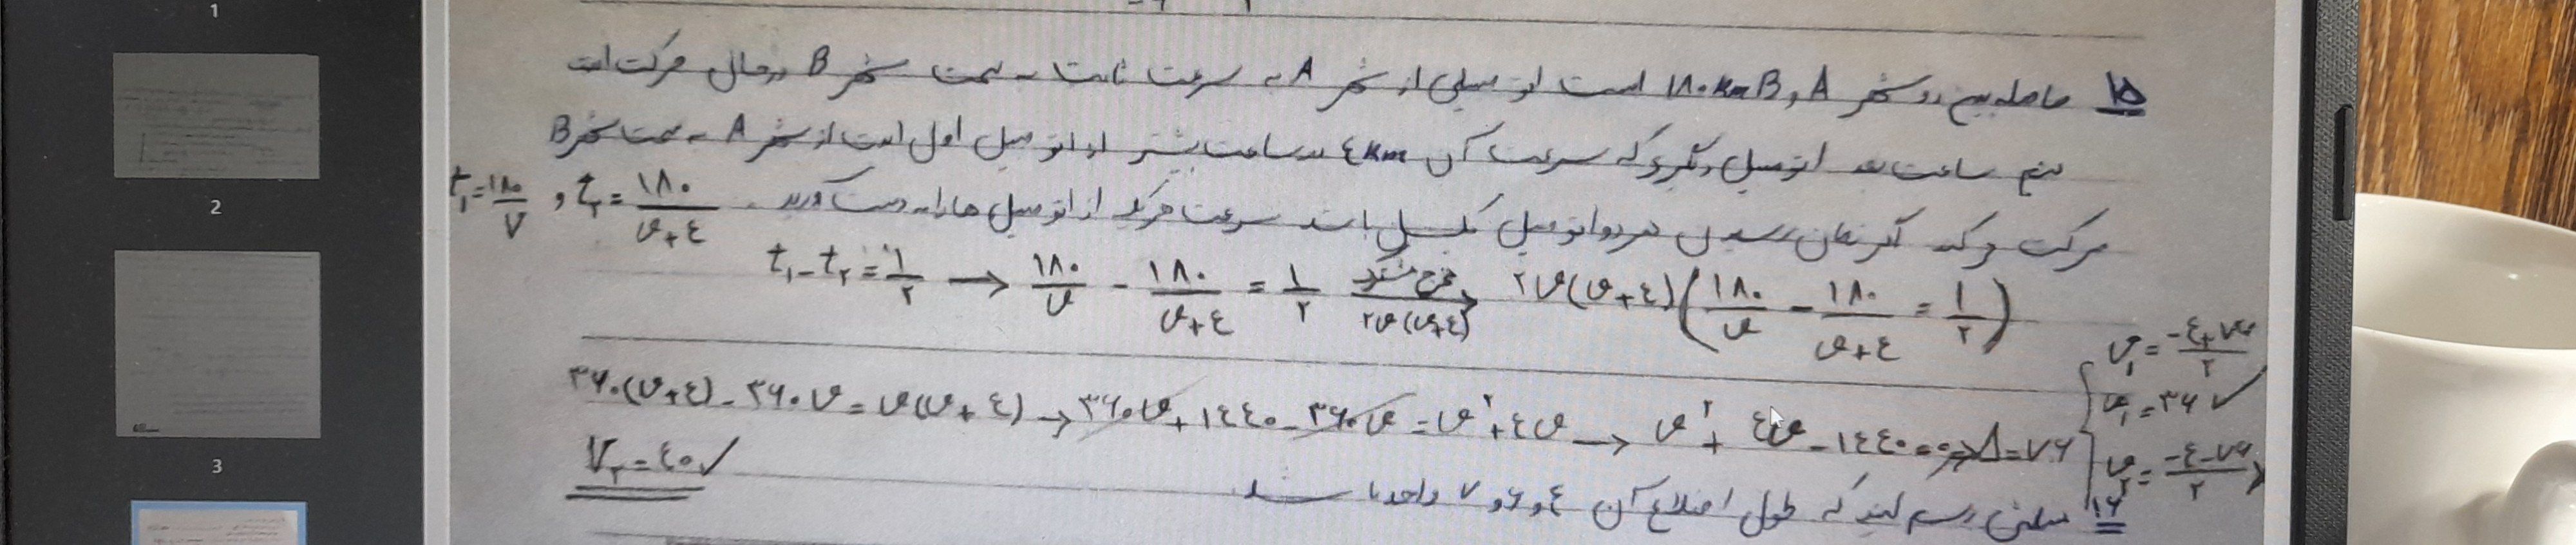 1
2
3
۱۵ فاصله بین دو شهر A و B ۱۸۰ km است اتومبیلی از شهر A به سرعت ثابت به سمت شهر B در حال حرکت است
نیم ساعت بعد اتومبیل دیگری که سرعت آن ۴ km در ساعت بیشتر از اتومبیل اول است از شهر A به سمت شهر B
حرکت می‌کند اگر زمان رسیدن هر دو اتومبیل یکسان باشد سرعت هر یک از اتومبیل ها را به دست آورید. t₁ = ۱۸۰/v , t₂ = ۱۸۰/(v+۴)
t₁ - t₂ = ۱/۲ → ۱۸۰/v - ۱۸۰/(v+۴) = ۱/۲ مخرج مشترک ۲v(v+۴) → ۲v(v+۴)(۱۸۰/v - ۱۸۰/(v+۴) = ۱/۲)
۳۶۰(v+۴) - ۳۶۰v = v(v+۴) → ۳۶۰v + ۱۴۴۰ - ۳۶۰v = v² + ۴v → v² + ۴v - ۱۴۴۰ = ۰ → Δ = ۷۶
v₁ = (-۴+۷۶)/۲
v₁ = ۳۶ ✓
v₂ = (-۴-۷۶)/۲
V₂ = ۴۰ ✓
۱۶ مثلثی رسم کنید که طول اضلاع آن ۴ و ۶ و ۷ واحد باشد